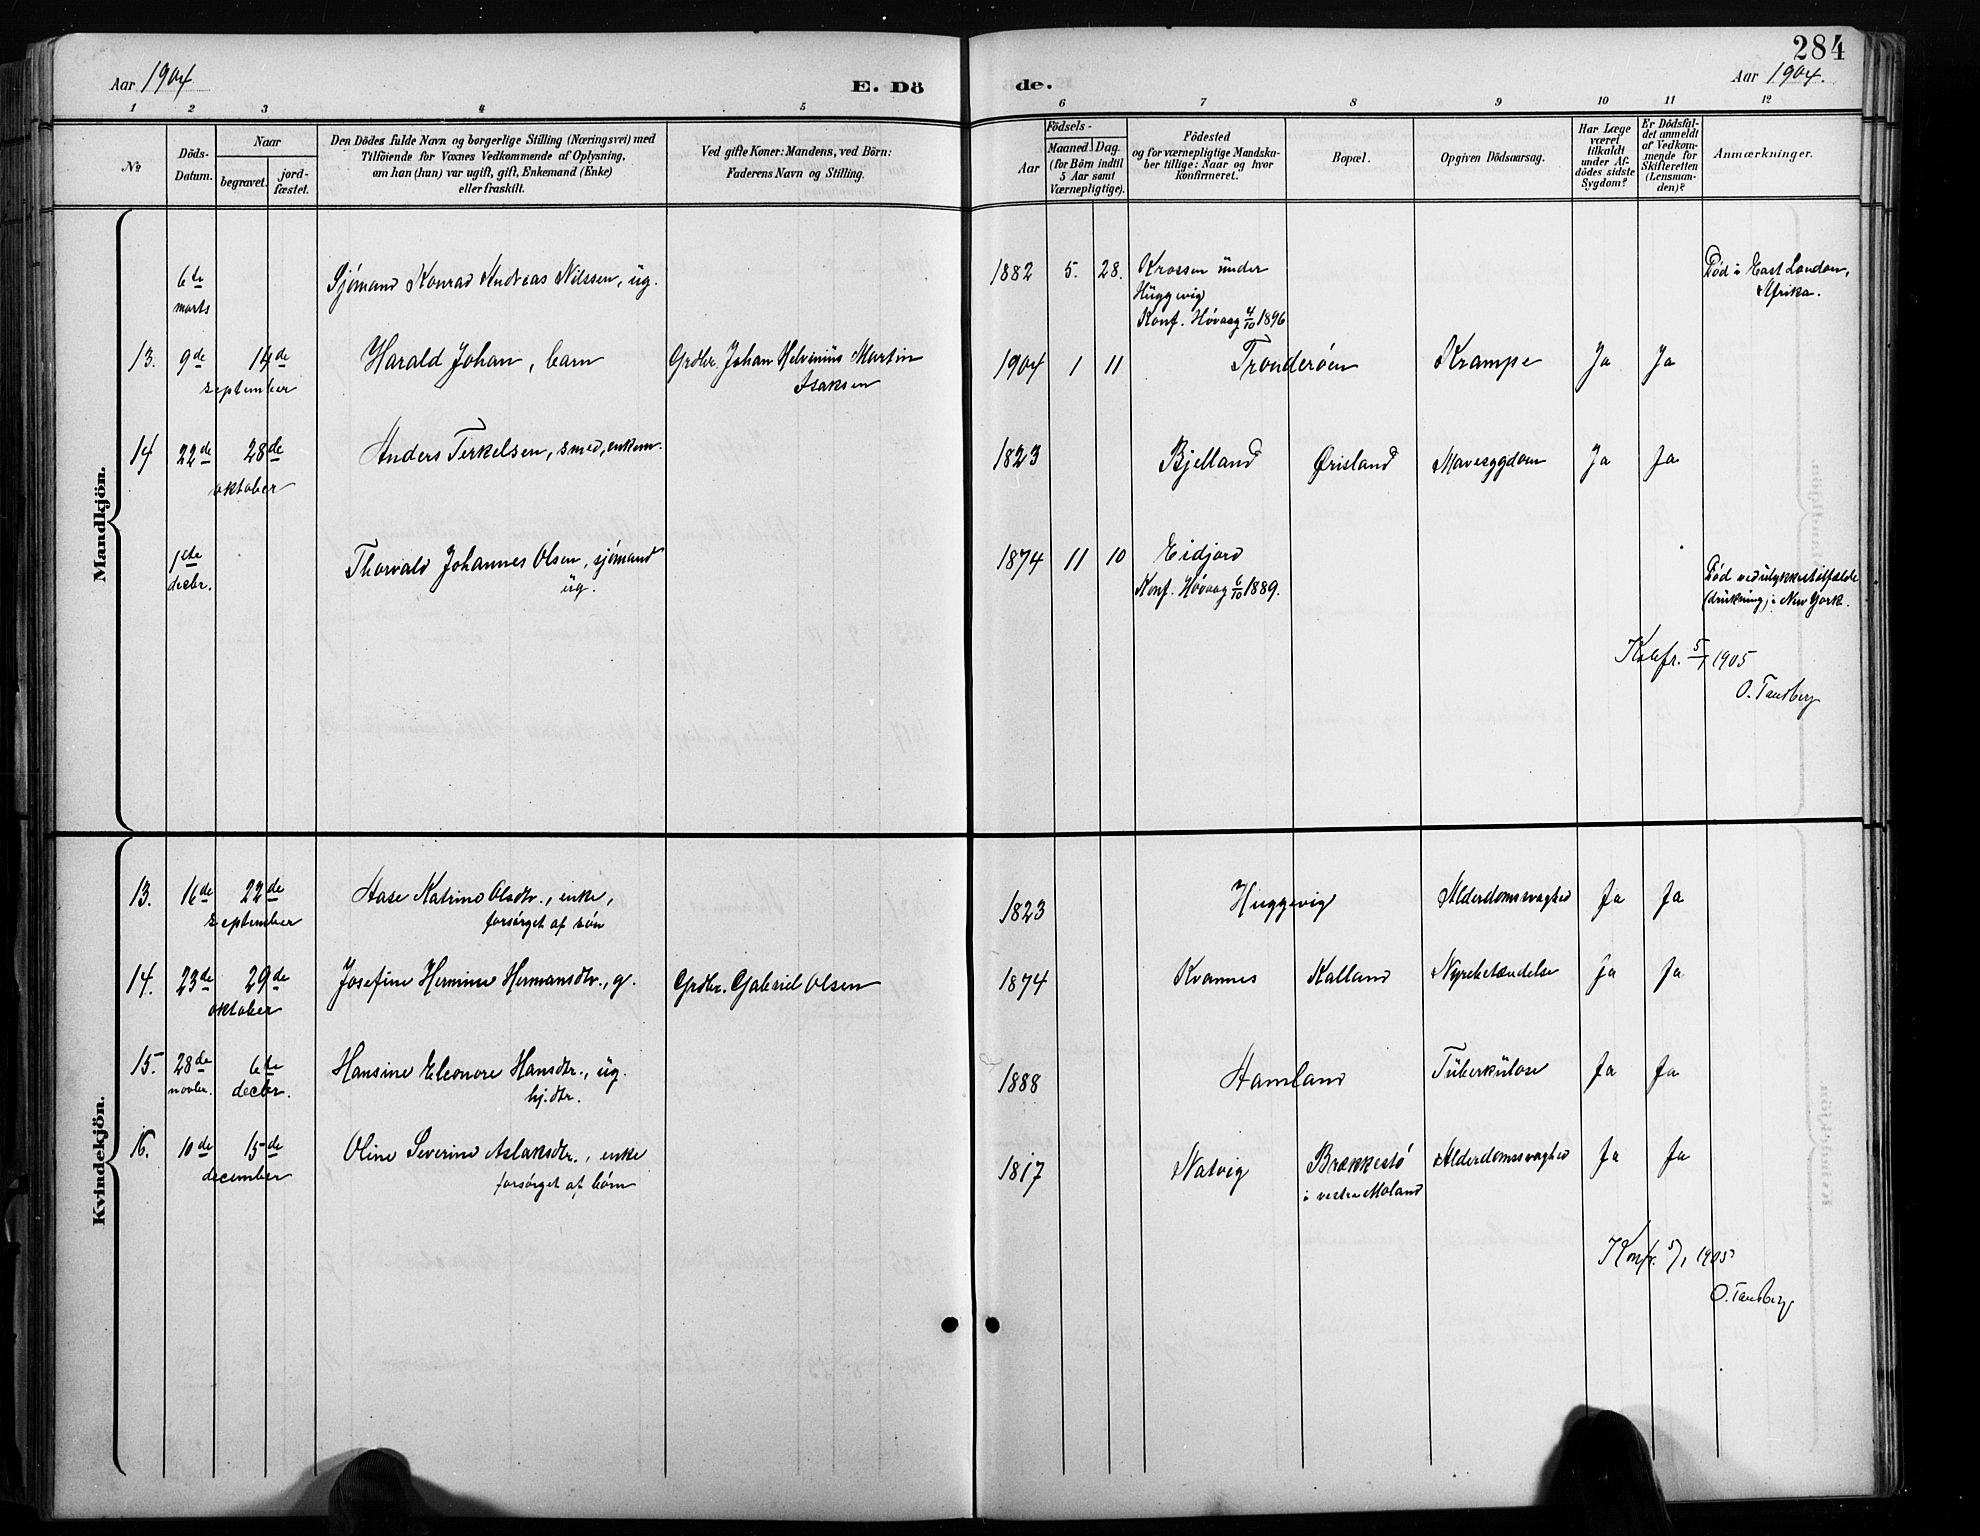 284
Aar 1904
E. Dö
de.
Aar 1904.
1 2 3 4 5 6 7 8 9 10 11 12
No
Döds-Datum.
Naar
begravet.
jord-fæstet.
Den Dödes fulde Navn og borgerlige Stilling (Næringsvei) med
Tilföiende for Voxnes Vedkommende af Oplysning,
om han (hun) var ugift, gift, Enkemand (Enke)
eller fraskilt.
Ved gifte Koner: Mandens, ved Börn:
Faderens Navn og Stilling.
Födsels-
Aar
Maaned. Dag.
(for Börn indtil
5 Aar samt
Værnepligtige).
Födested
og for værnepligtige Mandska-
ber tillige: Naar og hvor
konfirmeret.
Bopæl.
Opgiven Dödsaarsag.
Har Læge
været
tilkaldt
under Af-
dödes sidste
Sygdom?
Er Dödsfal-
det anmeldt
af Vedkom-
mende for
Skifteretten
(Lensman-
den)?
Anmærkninger.
Mandkjön.
6te marts
Sjømand Konrad Andreas Nilssen, ug.
1882 5. 28.
Krossen under
Huggevig
Konf. Høvaag 4/10 1896
Død i East London,
Afrika.
13. 9de 14de
september
Harald Johan, barn
Grdbr. Johan Helvinius Martin
Isaksen
1904 1 11
Tronderöen
Krampe
Ja Ja
14 22de 28de
oktober
Anders Terkelsen, smed, enkem.
1823
Bjelland
Ørisland
Mavesygdom
Ja Ja
1ste decbr.
Thorvald Johannes Olsen, sjømand
ug.
1874 11 10
Eidjord
Konf. Høvaag 6/10 1889.
Død ved ulykkestilfælde
(drukning) i New York.
Konfr. 5/1 1905
O. Tansberg
Kvindekjön.
13. 16de 22de
september
Aase Katrine Olsdtr., enke,
forsørget af søn
1823
Huggevig
Alderdomssvaghed
Ja Ja
14. 23de 29de
oktober
Josefine Hermine Hermansdtr., g.
Grdbr. Gabriel Olsen
1874
Kvannes
Kalland
Nyrebetændelse
Ja Ja
15. 28de 6te
novbr. decbr.
Hansine Eleonore Hansdtr., ug.
hj.dtr.
1888
Hamland
Tuberkulose
Ja Ja
16. 10de 15de
december
Oline Severine Aslaksdtr., enke
forsørget af børn
1817
Natvig
Brækkestø
i vestre Moland
Alderdomssvaghed
Ja Ja
Konfr. 5/1 1905
O. Tansberg